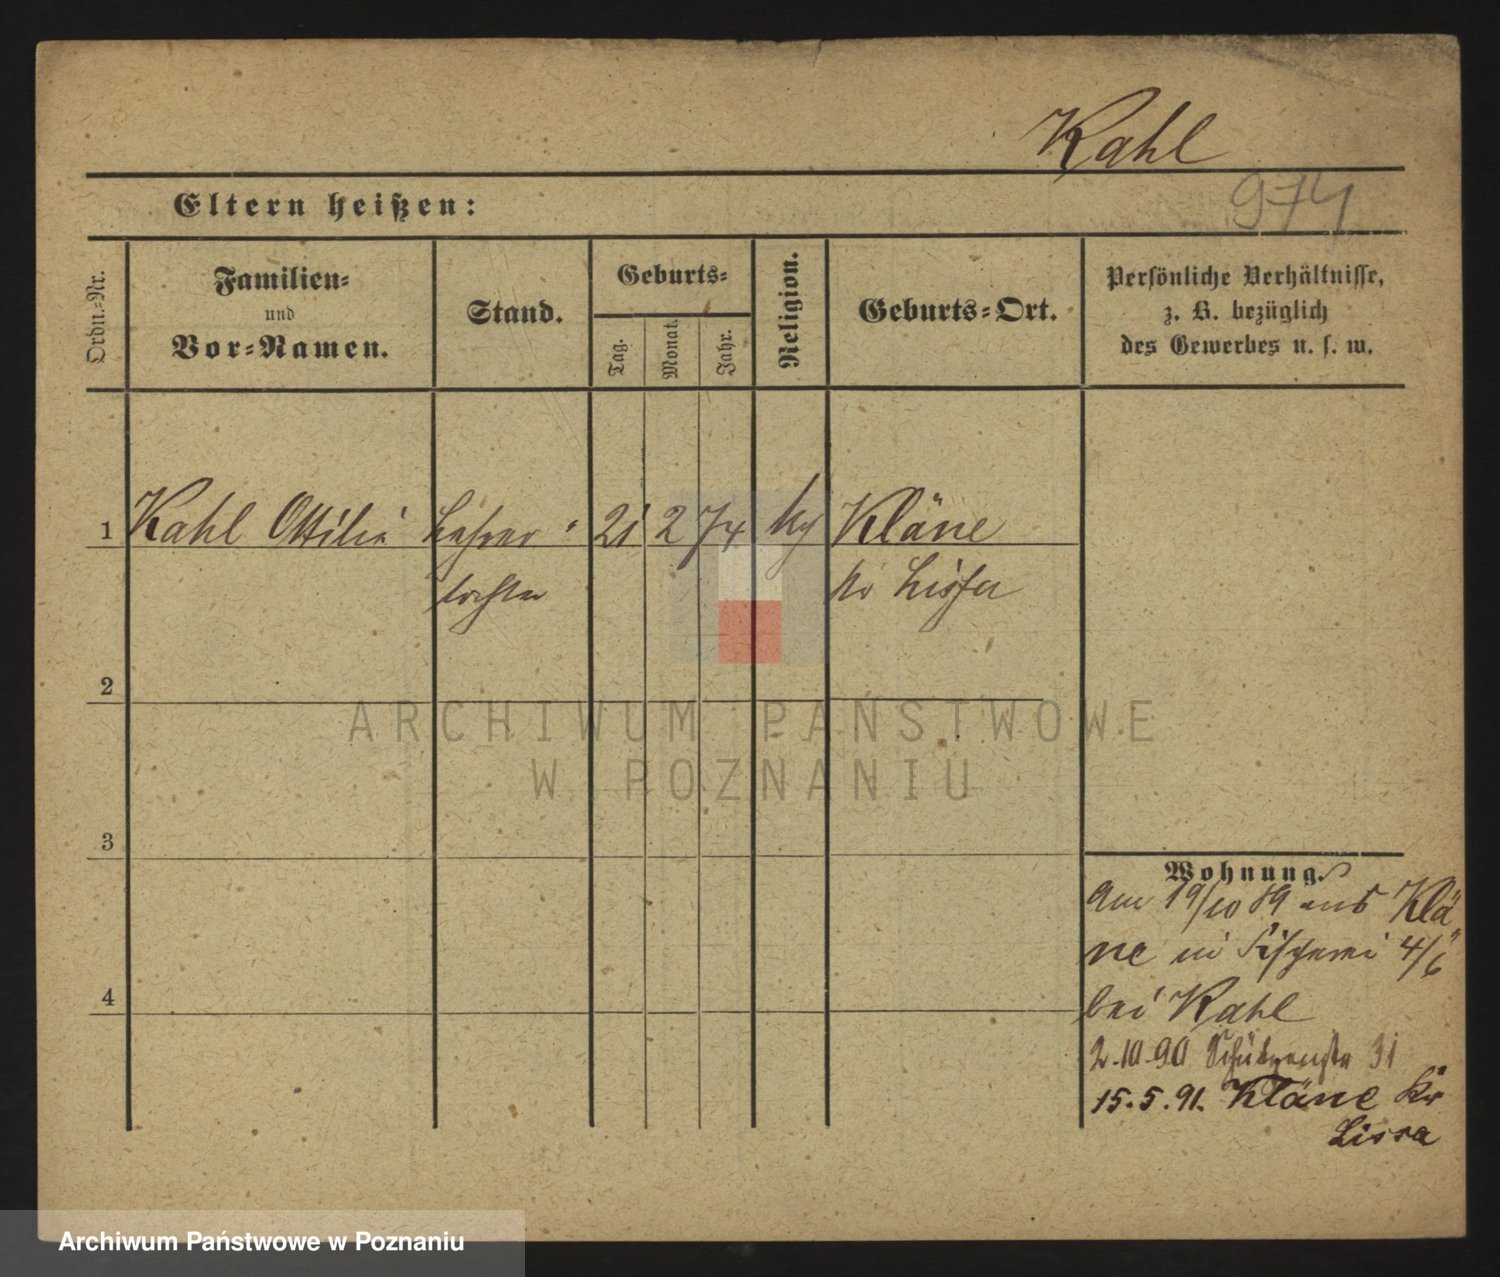 Kahl
974
Eltern heißen:
Ordn.-Nr.
Familien-
und
Vor-Namen.
Stand.
Geburts-
Tag.
Monat.
Jahr.
Religion.
Geburts-Ort.
Persönliche Verhältnisse,
z. B. bezüglich
des Gewerbes u. s. w.
1 Kahl Ottilie Lehrer- 21 2 74 Kläne
tochter Kr Lissa
2
3
4
ARCHIWUM PAŃSTWOWE
W POZNANIU
Wohnung.
Am 19/10 89 aus Klä-
ne in Fischerei 4/6
bei Kahl
2.10.90 Schützenstr 31
15.5.91. Kläne Kr
Lissa
Archiwum Państwowe w Poznaniu